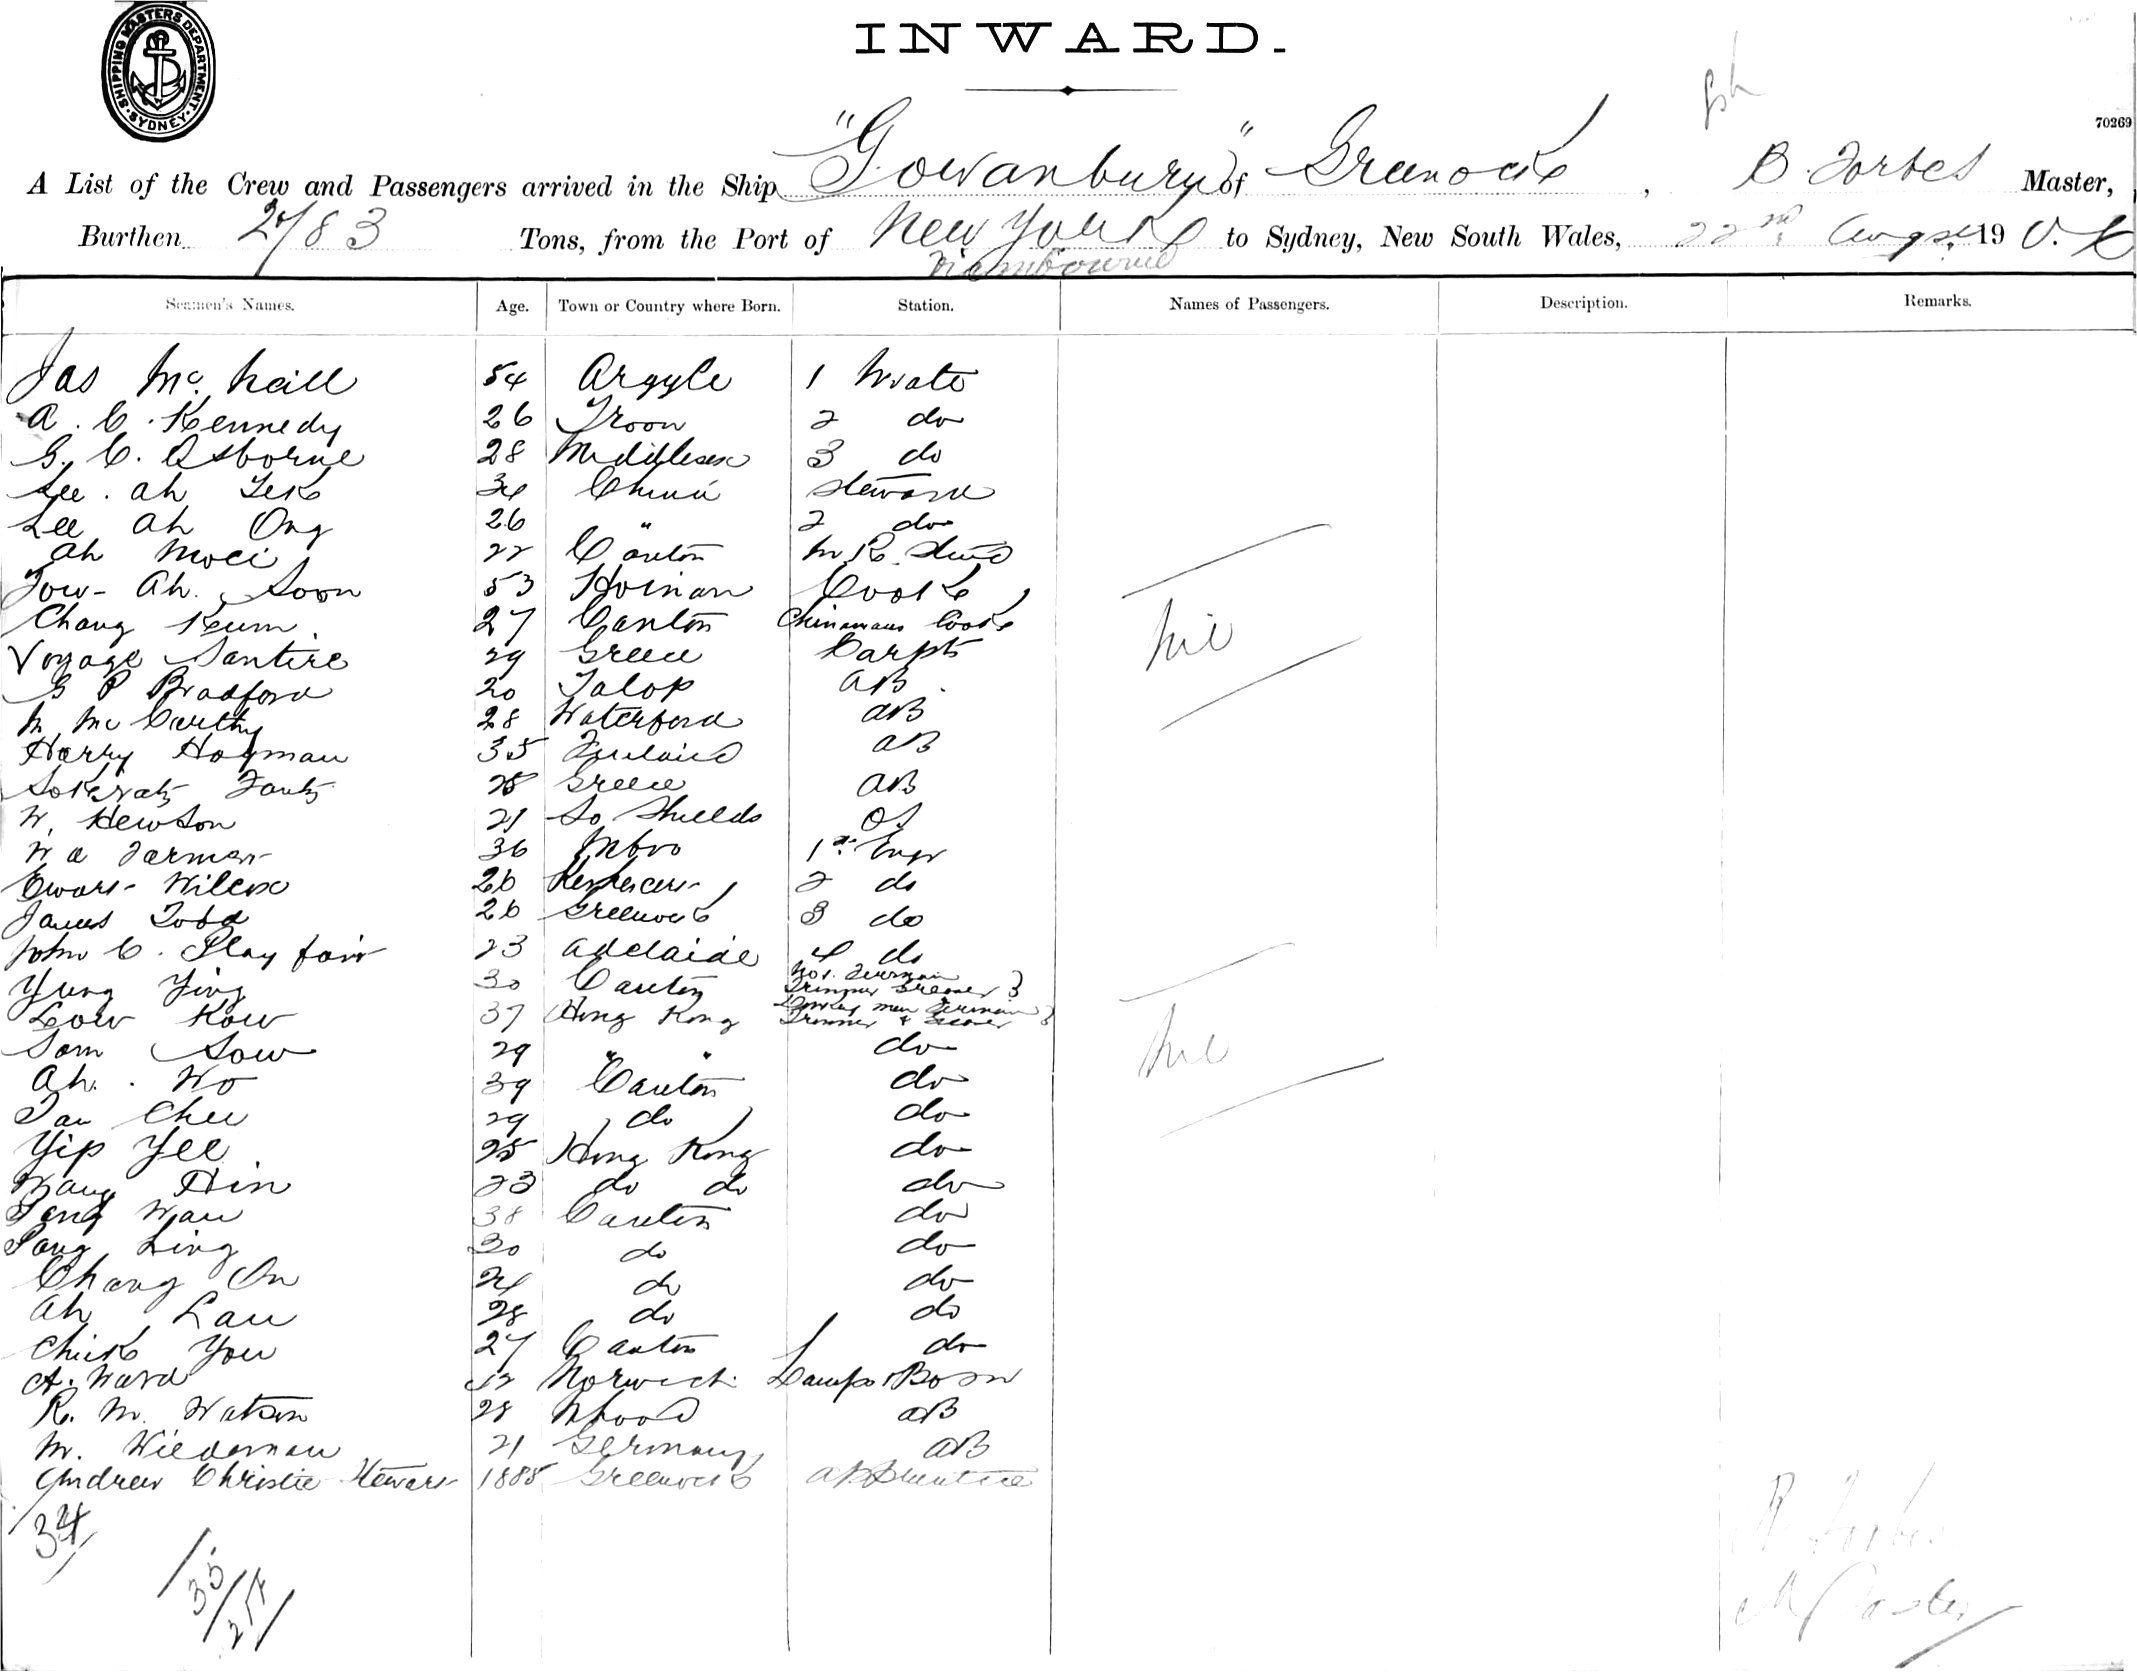 INWARD.
SHIPPING MASTERS DEPARTMENT SYDNEY
70269
A List of the Crew and Passengers arrived in the Ship "Gowanburn" of Greenock, B. Forbes Master,
Burthen 2183 Tons, from the Port of New York to Sydney, New South Wales, 22nd Augst 190
Melbourne
Seamen's Names. Age. Town or Country where Born. Station. Names of Passengers. Description. Remarks.
Jas McNeill 54 Argyle 1 Mate
A. C. Kennedy 26 Troon 2 do
G. C. Osborne 28 Middlesex 3 do
Lee Ah Tek 34 China Steward
Lee Ah Ong 26 " 2 do
Ah Moei 22 Canton M.R. Stwd
Fow Ah Soon 53 Hoinan Cook
Chang Keum 27 Canton Chinamans Cook
Nil
Voyage Santire 29 Greece Carptr
G P Bradford 20 Salop AB
M McCarthy 28 Waterford AB
Harry Hogman 35 Finland AB
Sokratz 28 Greece AB
W. Hewson 21 So Shields OS
W a Farmer 36 Mbro 1st Engr
Wilcox 26 2 do
James Todd 26 Greenock 3 do
John C. Playfair 23 Adelaide 4 do
Yung Ying 30 Canton No 1. Fireman Trimmer Greaser }
Low Kow 37 Hong Kong Donkey man Fireman Trimmer & Greaser }
Nil
Sam Sow 29 " " do
Ah. Wo 39 Canton do
Tau Chee 29 do do
Yip Yee 25 Hong Kong do
Wang Hin 23 do do do
Tong Wau 38 Canton do
Pang Ling 30 do do
Chang On 24 do do
Ah Lau 28 do do
Chick You 27 Canton do
A. Ward Norwich Lamps & Bosn
R. M. Watson 28 AB
M. Wiedernau 21 Germany AB
Andrew Christie Stewart 1888 Greenock apprentice
34
35
B. Forbes
Master